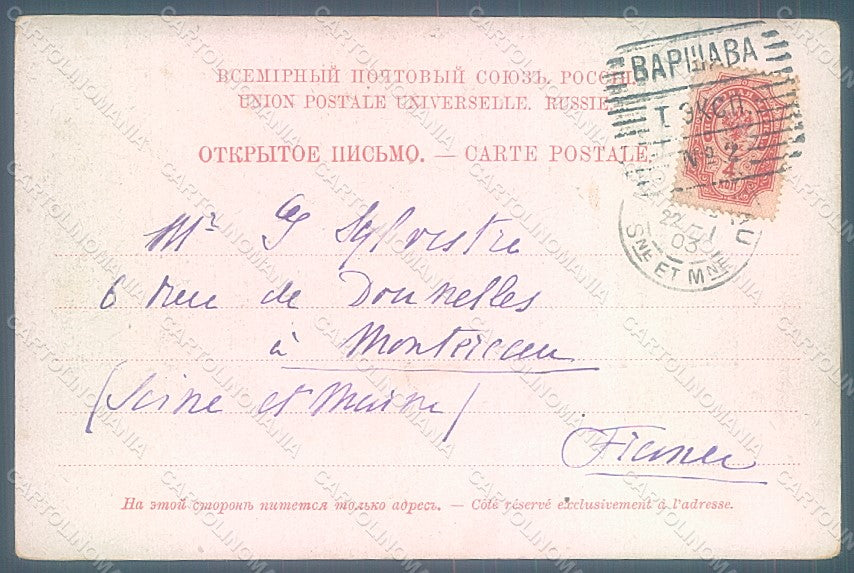 ВСЕМІРНЫЙ ПОЧТОВЫЙ СОЮЗЪ. РОССІЯ.
UNION POSTALE UNIVERSELLE. RUSSIE.
ОТКРЫТОЕ ПИСЬМО. — CARTE POSTALE.
ВАРШАВА
Т. ЭКСП.
№ 2
22
03
SNE ET MNE
Mr Sylvestre
6 rue de Dounelles
à Montereau
(Seine et Marne)
France
На этой сторонѣ пишется только адресъ. — Côté réservé exclusivement à l'adresse.
CARTOLINOMANIA